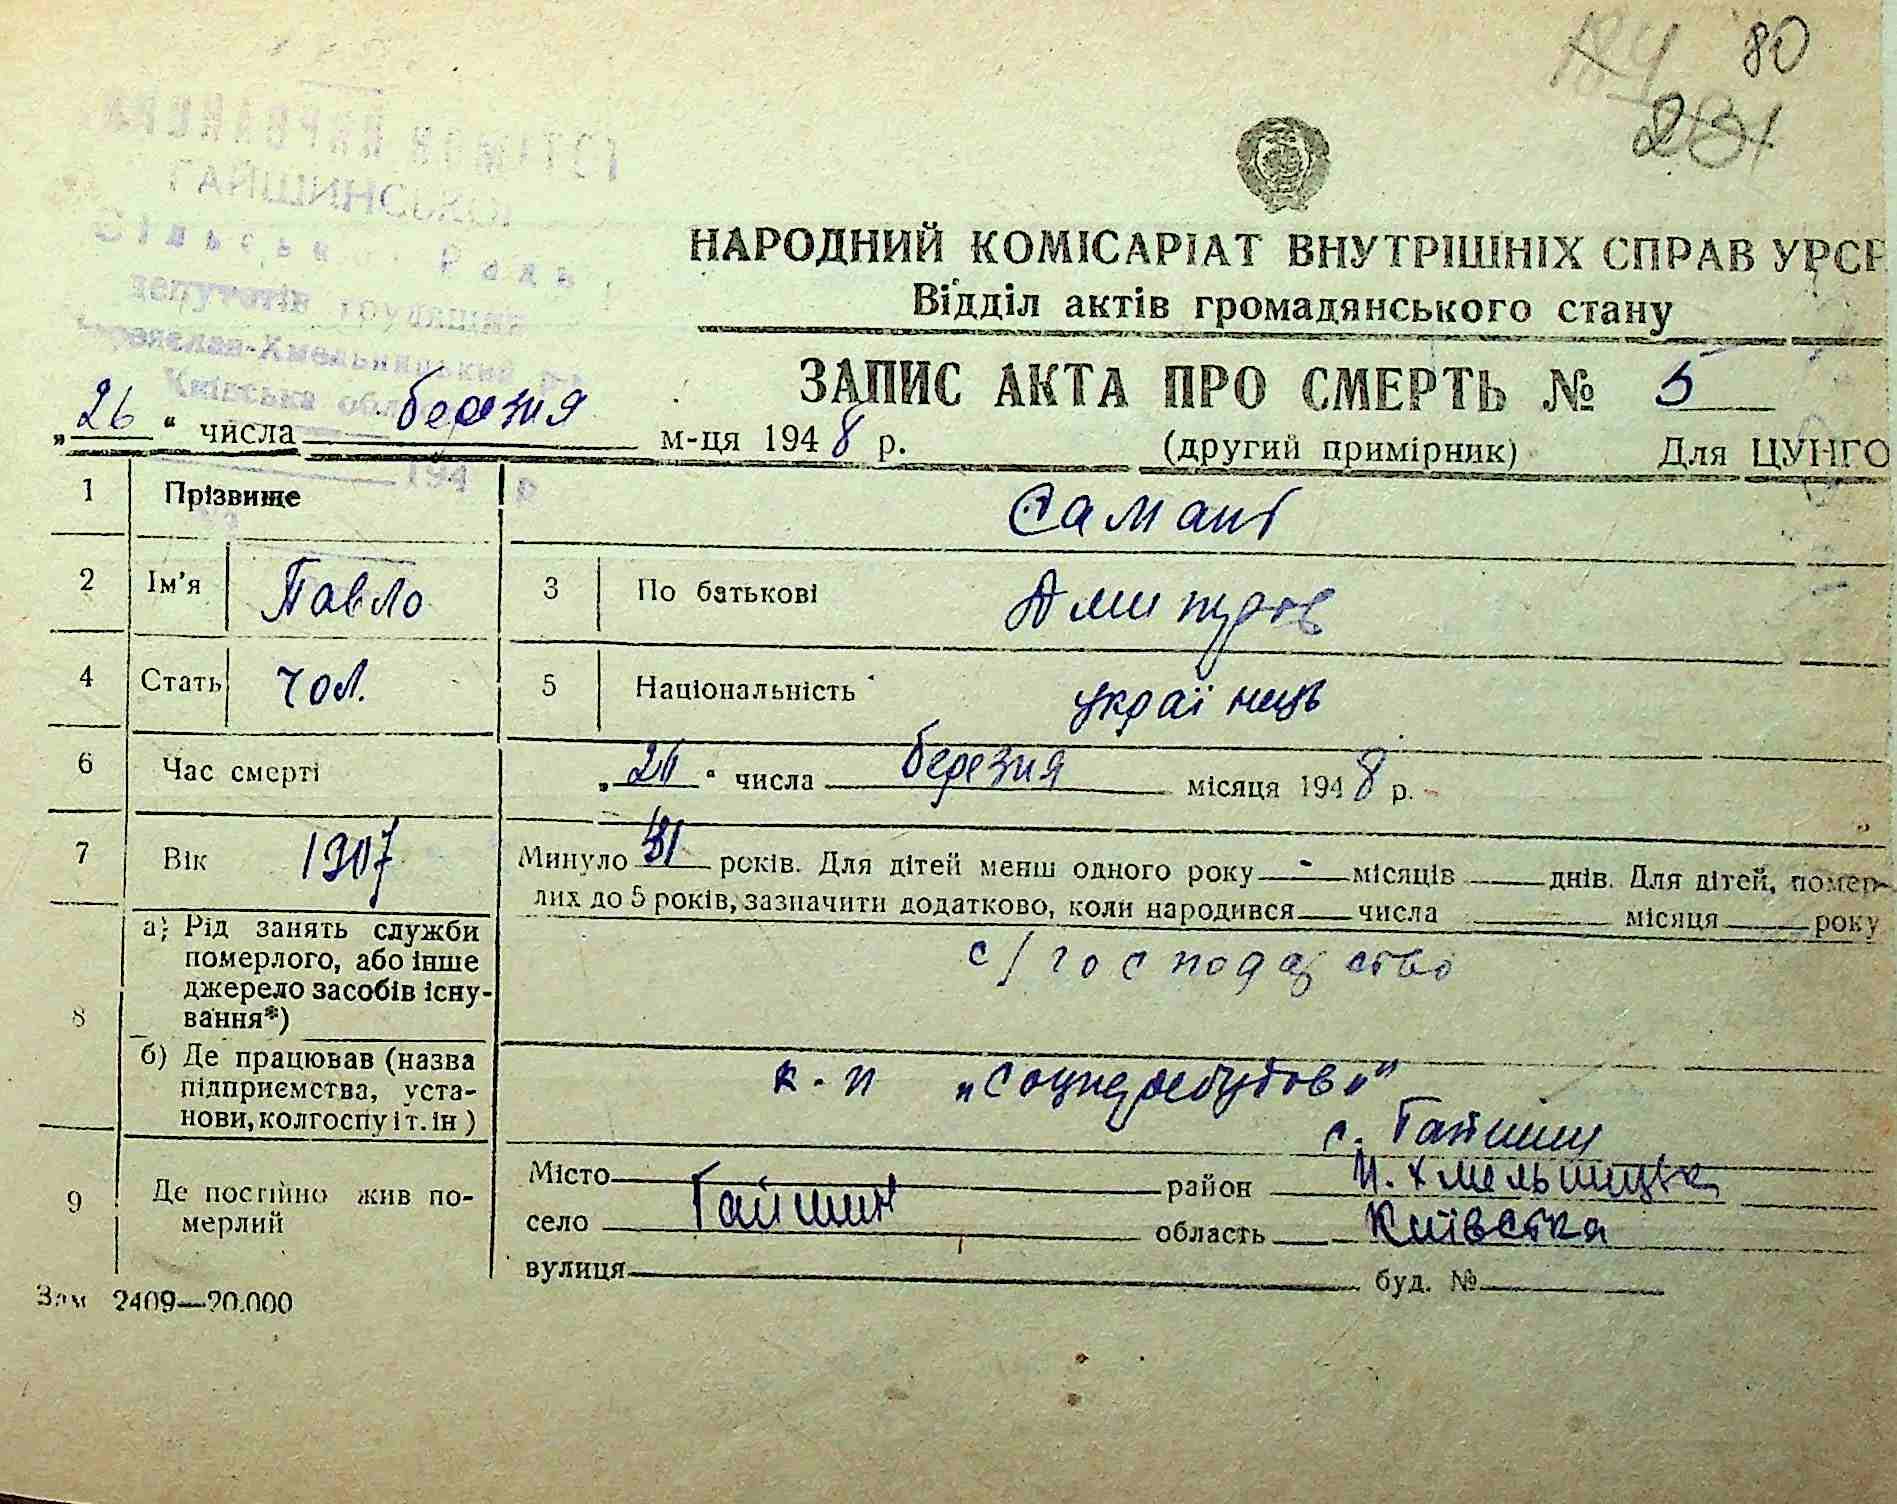 80
231
ВИКОНАВЧИЙ КОМІТЕТ
ГАЙШИНСЬКОЇ
Сільської Ради
депутатів трудящих
Переяслав-Хмельницький р-н
Київська обл.
194 р
НАРОДНИЙ КОМІСАРІАТ ВНУТРІШНІХ СПРАВ УРСР
Відділ актів громадянського стану
ЗАПИС АКТА ПРО СМЕРТЬ № 5
„26“ числа березня м-ця 1948 р. (другий примірник) Для ЦУНГО
1 Прізвище Саман
2 Ім'я Павло 3 По батькові Дмитров
4 Стать чол. 5 Національність українець
6 Час смерті „26“ числа березня місяця 1948 р.
7 Вік 1907 Минуло років. Для дітей менш одного року - місяців днів. Для дітей, помер-
лих до 5 років, зазначити додатково, коли народився числа місяця року
8 а) Рід занять служби померлого, або інше джерело засобів існу-вання*) с/господарство
б) Де працював (назва підприємства, уста-нови, колгоспу і т. ін) к-п „Соцперебудова"
с. Гайшин
9 Де постійно жив по-мерлий Місто район П. Хмельницьк
село Гайшин область Київська
вулиця буд. №
Зам 2409—20.000